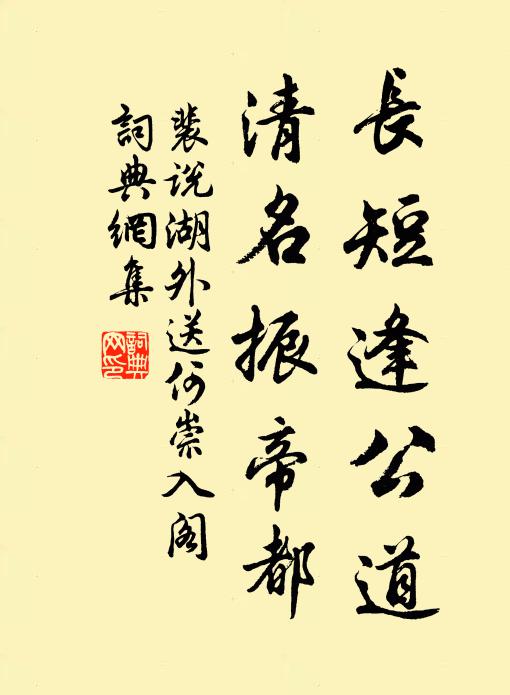 長短逢公道
清名振帝都
裴说湖外送何崇入阁
詞典網集
詞典網印